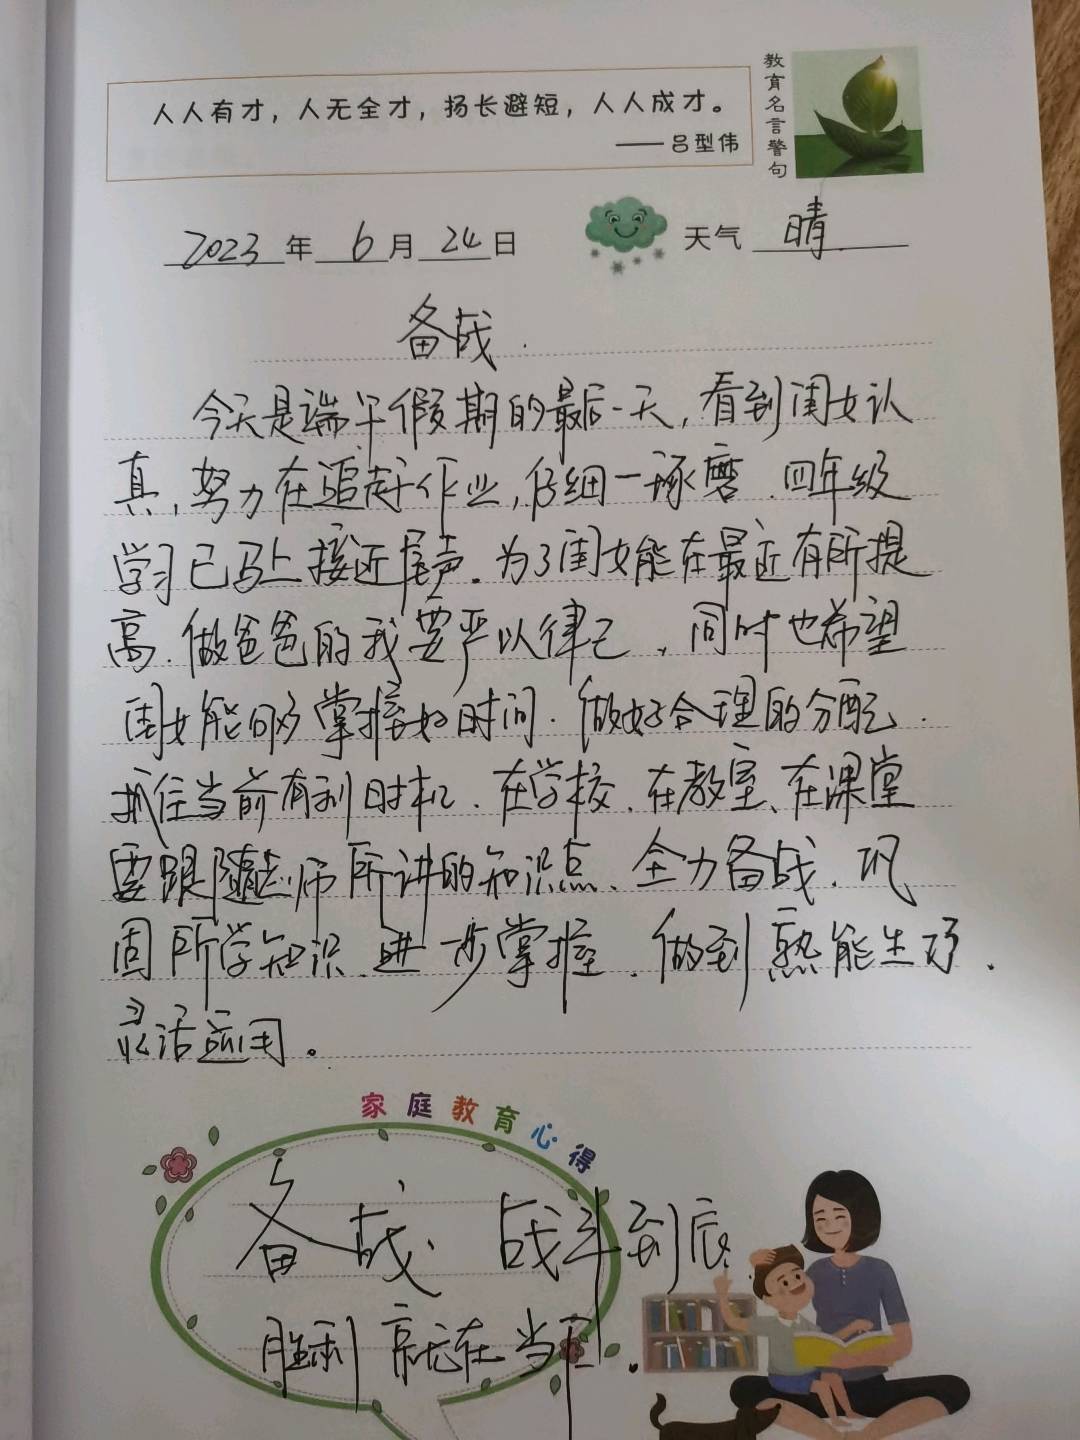 人人有才，人无全才，扬长避短，人人成才。
——吕型伟
教育名言警句
2023年6月24日 天气 晴
备战.
今天是端午假期的最后一天,看到闺女认
真,努力在追赶作业,仔细一琢磨.四年级
学习已马上接近尾声.为了闺女能在最近有所提
高.做爸爸的我要严以律己,同时也希望
闺女能够掌握好时间.做好合理的分配.
抓住当前有利时机.在学校.在教室、在课堂
要跟随老师所讲的知识点、全力备战.巩
固所学知识.进一步掌握.做到熟能生巧.
灵活运用。
家庭教育心得
备战.战斗到底.
胜利就在当下.